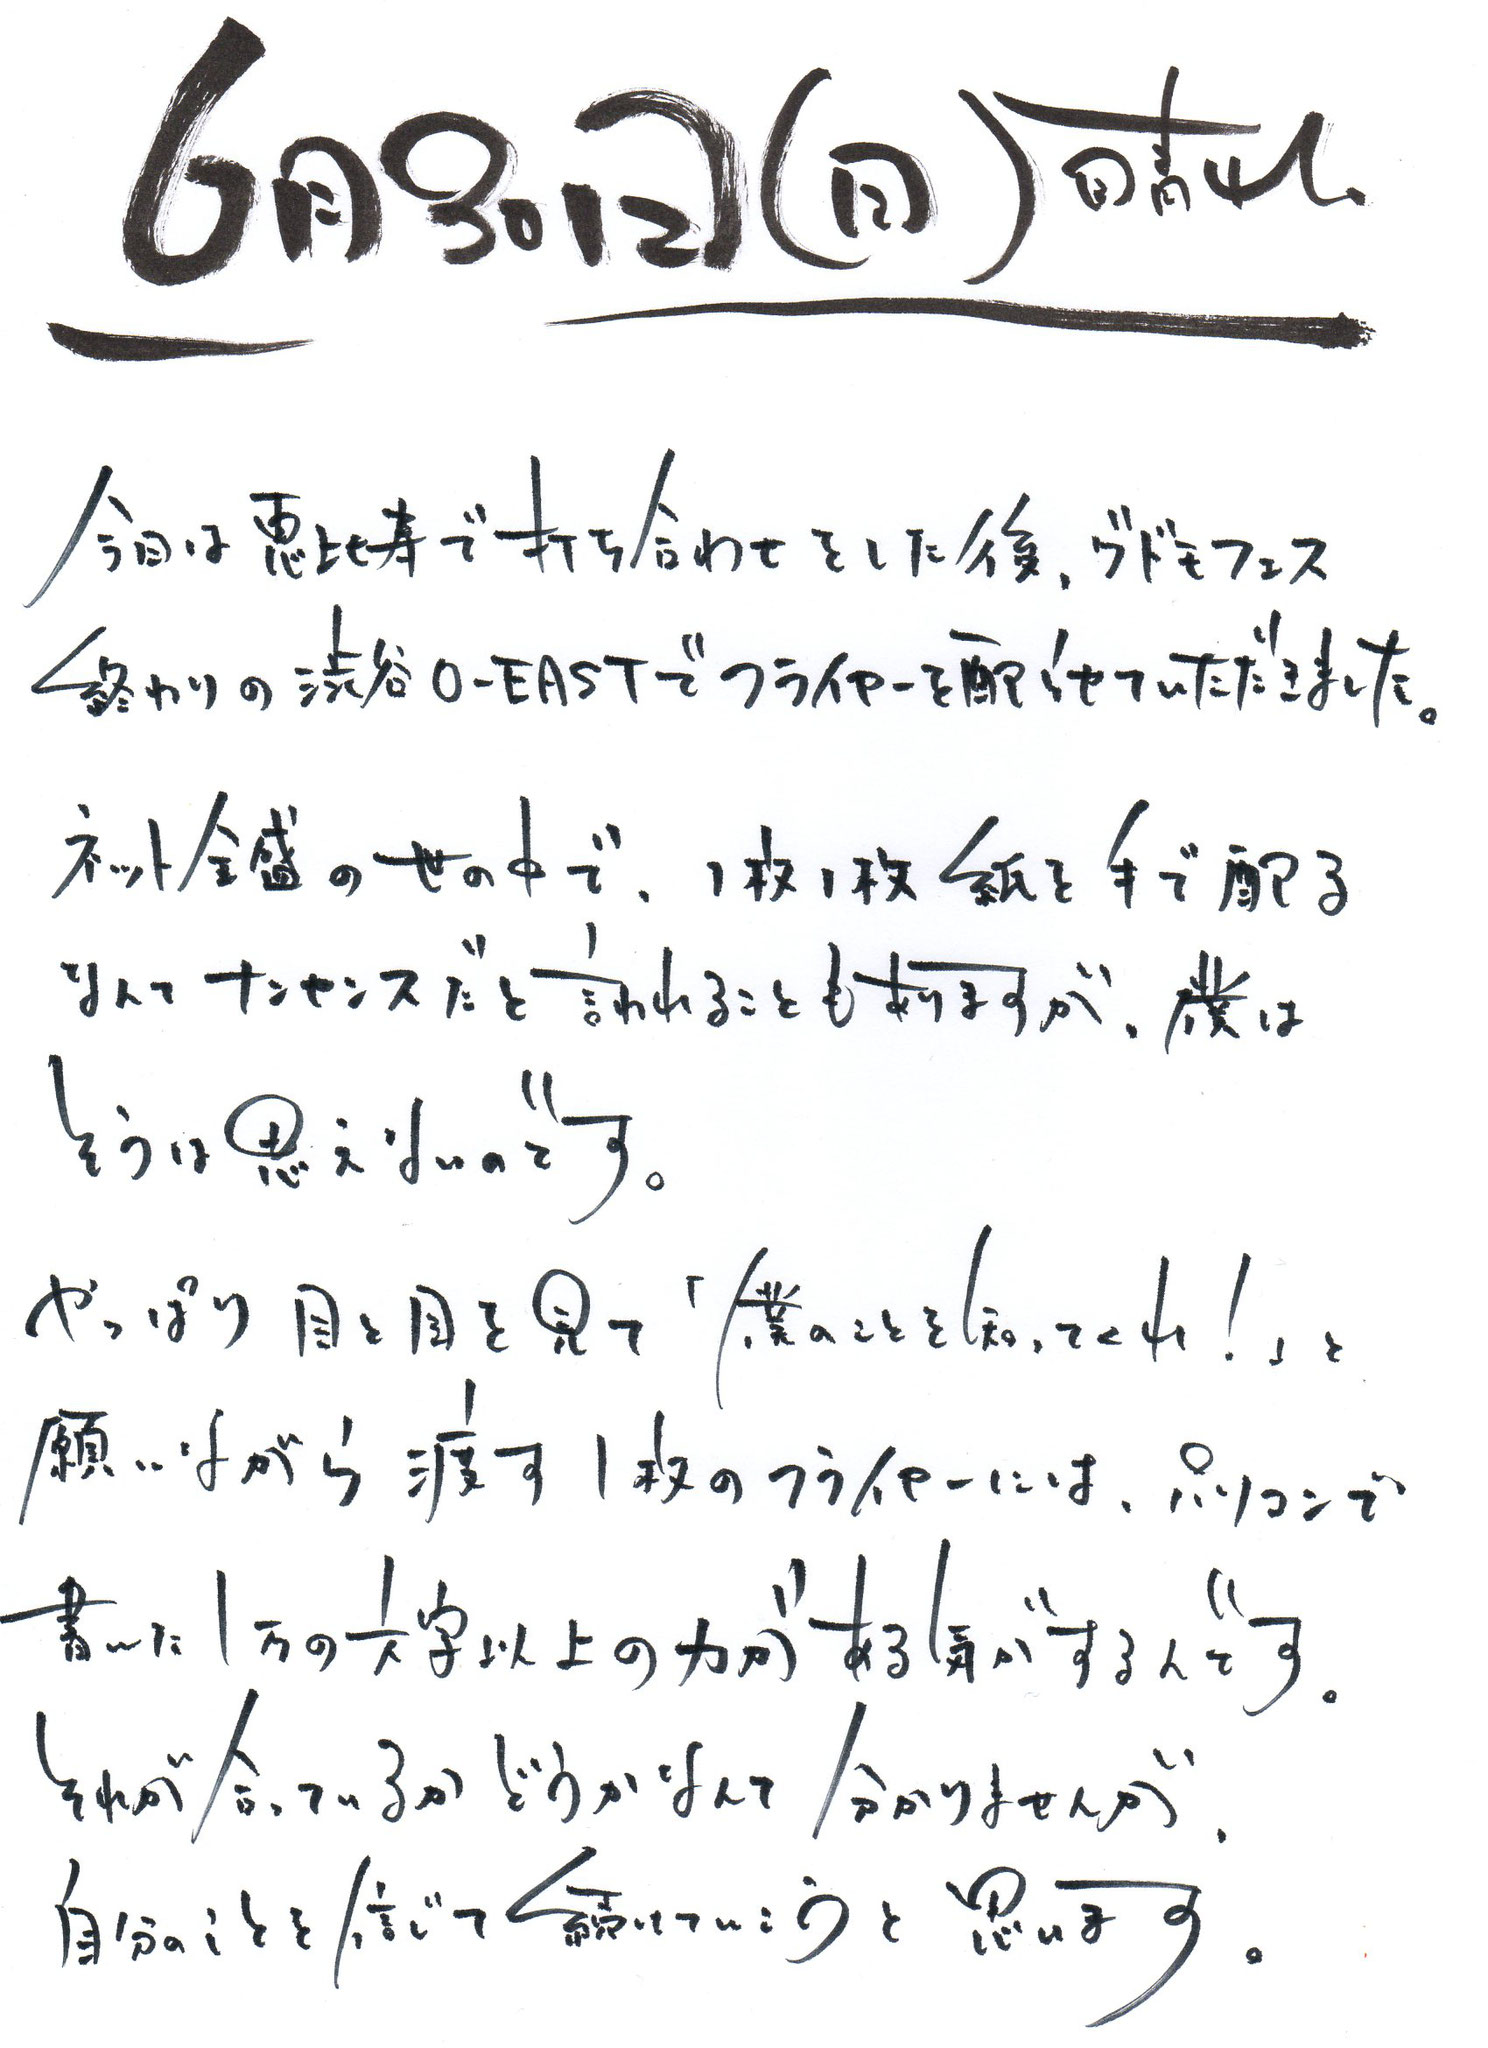 6月30日(日)晴れ
今日は恵比寿で打ち合わせをした後、ヴドモフェス
終わりの渋谷O-EASTでフライヤーを配らせていただきました。
ネット全盛の世の中で、1枚1枚紙を手で配る
なんてナンセンスだと言われることもありますが、僕は
そうは思えないのです。
やっぱり目と目を見て「僕のことを知ってくれ!」と
願いながら渡す1枚のフライヤーには、パソコンで
書いた1万の文字以上の力がある気がするんです。
それが合っているかどうかなんて分かりませんが、
自分のことを信じて続けていこうと思います。